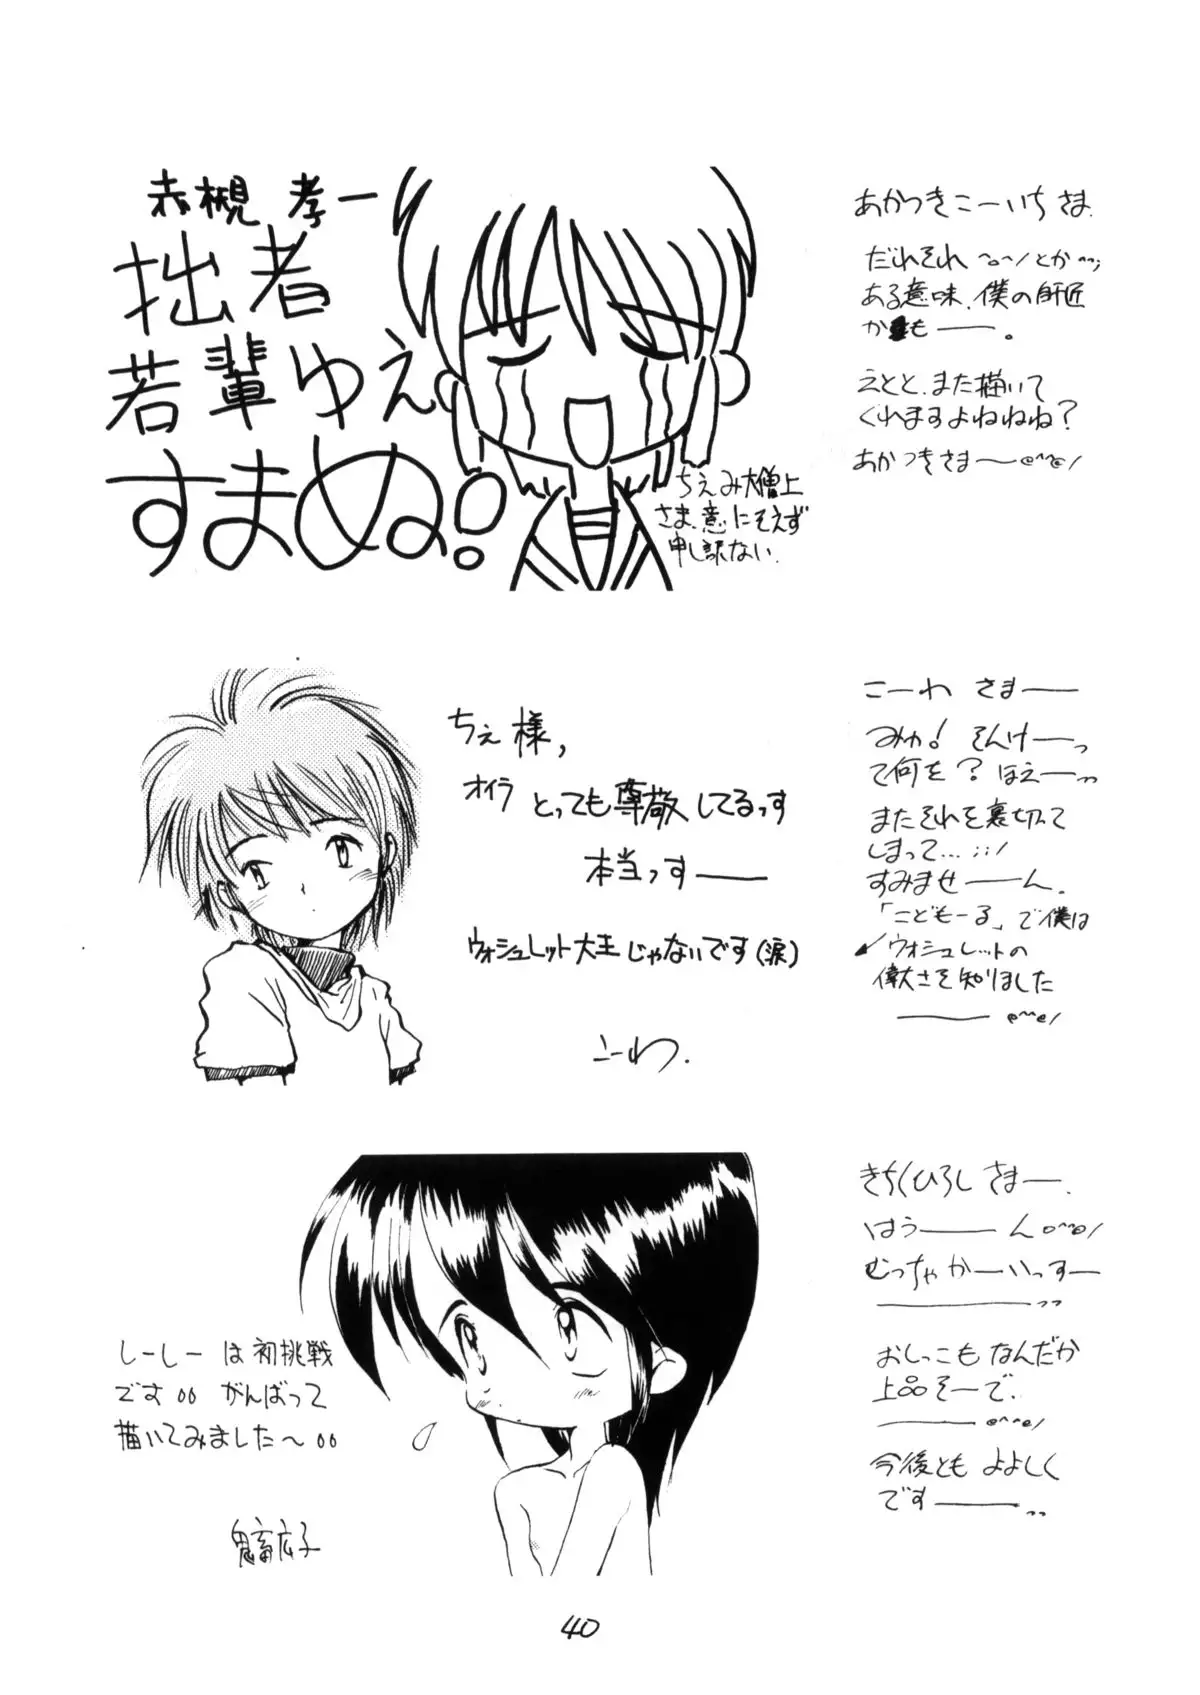 赤槻 孝一
拙者
若輩ゆえ
すまぬ!
ちえみ大僧上
さま、意にそえず
申し訳ない.
あかつきこーいち さま.
だれそれ ^o^/とか^^;
ある意味、僕の師匠
かも――。
えとと、また描いて
くれますよねねね?
あかつきさま―@^^@/
ちぇ様,
オイラ とっても尊敬してるっす
本当っす――
ウォシュレット大王じゃないです(涙)
こーわ.
こーわ さま――
みゅ! そんけーっ
て何を? ほえーっっ
またそれを裏切って
しまって…;;/
すみませ――ん.
「こどもーる」で僕は
ウォシュレットの
偉大さを知りました
―― @^^@/
しーしー は初挑戦
です。。がんばって
描いてみました〜。。
鬼畜広子
きちくひろし さま―.
はう―― ん@^^@/
むっちゃ かーいっすー
――っっ
おしっこも なんだか
上品そーで.
―― @^^@/
今後とも よよしく
です――っっ
40